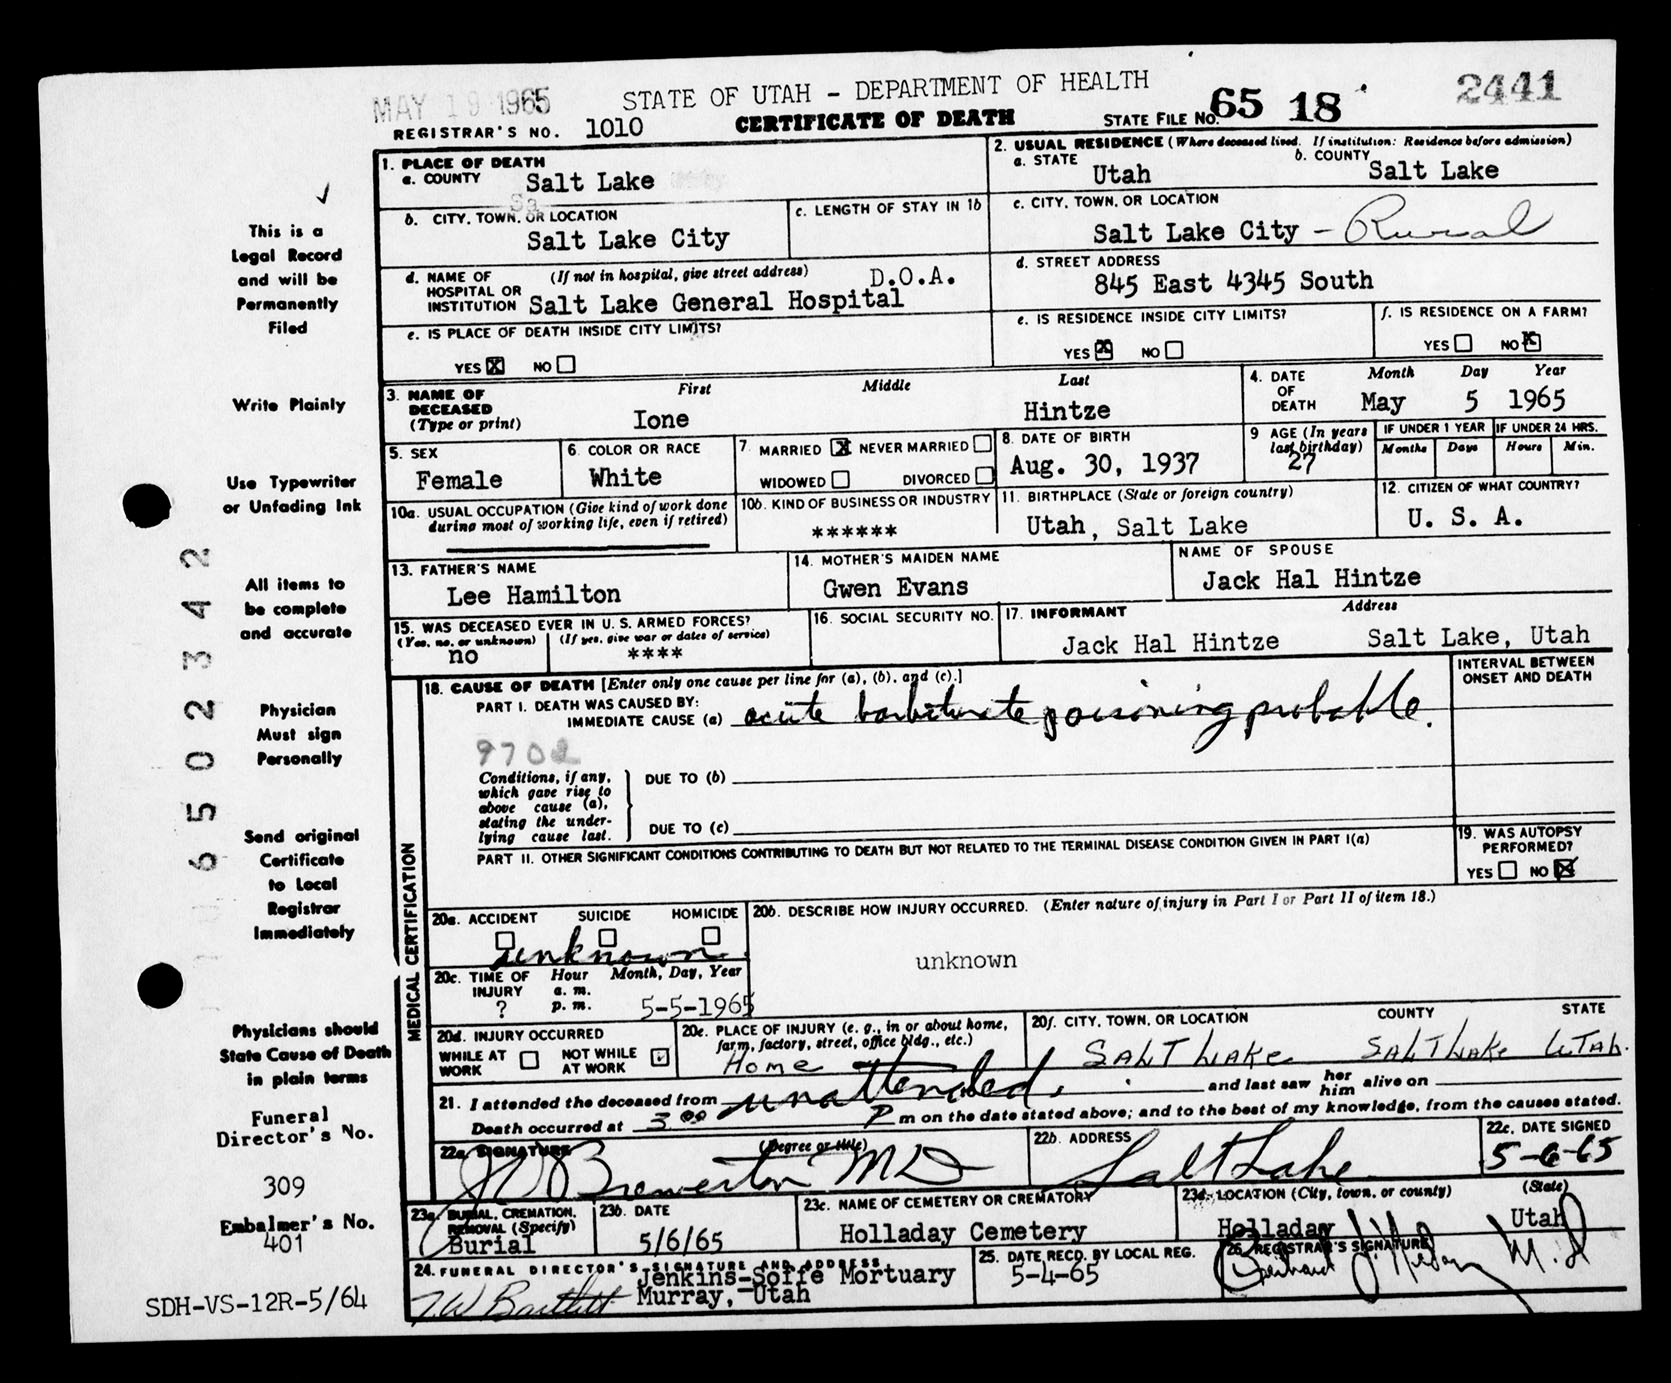 MAY 19 1965
STATE OF UTAH - DEPARTMENT OF HEALTH
2441
REGISTRAR'S NO. 1010
CERTIFICATE OF DEATH
STATE FILE NO. 65 18
This is a
Legal Record
and will be
Permanently
Filed
Write Plainly
Use Typewriter
or Unfading Ink
All items to
be complete
and accurate
Physician
Must sign
Personally
Send original
Certificate
to Local
Registrar
Immediately
Physicians should
State Cause of Death
in plain terms
Funeral
Director's No.
309
Embalmer's No.
401
SDH-VS-12R-5/64
6502342
1. PLACE OF DEATH
a. COUNTY Salt Lake
Sa
b. CITY, TOWN, OR LOCATION
Salt Lake City
c. LENGTH OF STAY IN 1b
d. NAME OF HOSPITAL OR INSTITUTION (If not in hospital, give street address) D.O.A.
Salt Lake General Hospital
e. IS PLACE OF DEATH INSIDE CITY LIMITS?
YES X NO
2. USUAL RESIDENCE (Where deceased lived. If institution: Residence before admission)
a. STATE Utah
b. COUNTY Salt Lake
c. CITY, TOWN, OR LOCATION
Salt Lake City - Rural
d. STREET ADDRESS
845 East 4345 South
e. IS RESIDENCE INSIDE CITY LIMITS?
YES X NO
f. IS RESIDENCE ON A FARM?
YES NO X
3. NAME OF DECEASED (Type or print)
First Middle Last
Ione Hintze
4. DATE OF DEATH Month Day Year
May 5 1965
5. SEX
Female
6. COLOR OR RACE
White
7. MARRIED X NEVER MARRIED
WIDOWED DIVORCED
8. DATE OF BIRTH
Aug. 30, 1937
9 AGE (In years last birthday)
27
IF UNDER 1 YEAR
Months Days
IF UNDER 24 HRS.
Hours Min.
10a. USUAL OCCUPATION (Give kind of work done during most of working life, even if retired)
10b. KIND OF BUSINESS OR INDUSTRY
******
11. BIRTHPLACE (State or foreign country)
Utah, Salt Lake
12. CITIZEN OF WHAT COUNTRY?
U. S. A.
13. FATHER'S NAME
Lee Hamilton
14. MOTHER'S MAIDEN NAME
Gwen Evans
NAME OF SPOUSE
Jack Hal Hintze
15. WAS DECEASED EVER IN U. S. ARMED FORCES?
(Yes, no, or unknown) (If yes, give war or dates of service)
no ****
16. SOCIAL SECURITY NO.
17. INFORMANT Address
Jack Hal Hintze Salt Lake, Utah
MEDICAL CERTIFICATION
18. CAUSE OF DEATH [Enter only one cause per line for (a), (b), and (c).]
INTERVAL BETWEEN ONSET AND DEATH
PART I. DEATH WAS CAUSED BY:
IMMEDIATE CAUSE (a) acute barbiturate poisoning probable.
9702
Conditions, if any, which gave rise to above cause (a), stating the underlying cause last.
DUE TO (b)
DUE TO (c)
PART II. OTHER SIGNIFICANT CONDITIONS CONTRIBUTING TO DEATH BUT NOT RELATED TO THE TERMINAL DISEASE CONDITION GIVEN IN PART I(a)
19. WAS AUTOPSY PERFORMED?
YES NO X
20a. ACCIDENT SUICIDE HOMICIDE
unknown
20b. DESCRIBE HOW INJURY OCCURRED. (Enter nature of injury in Part I or Part II of item 18.)
unknown
20c. TIME OF INJURY Hour a. m. p. m. Month, Day, Year
? 5-5-1965
20d. INJURY OCCURRED
WHILE AT WORK NOT WHILE AT WORK
20e. PLACE OF INJURY (e. g., in or about home, farm, factory, street, office bldg., etc.)
Home
20f. CITY, TOWN, OR LOCATION COUNTY STATE
SALT LAKE SALT LAKE UTAH.
21. I attended the deceased from unattended. and last saw her him alive on
Death occurred at 3 00 P m on the date stated above; and to the best of my knowledge, from the causes stated.
22a. SIGNATURE (Degree or title)
Brewerton MD
22b. ADDRESS
Salt Lake
22c. DATE SIGNED
5-6-65
23a. BURIAL, CREMATION, REMOVAL (Specify)
Burial
23b. DATE
5/6/65
23c. NAME OF CEMETERY OR CREMATORY
Holladay Cemetery
23d. LOCATION (City, town, or county) (State)
Holladay Utah
24. FUNERAL DIRECTOR'S SIGNATURE AND ADDRESS
Jenkins-Soffe Mortuary
T.W. Bartlett Murray, Utah
25. DATE RECD. BY LOCAL REG.
5-4-65
26. REGISTRAR'S SIGNATURE
M.D